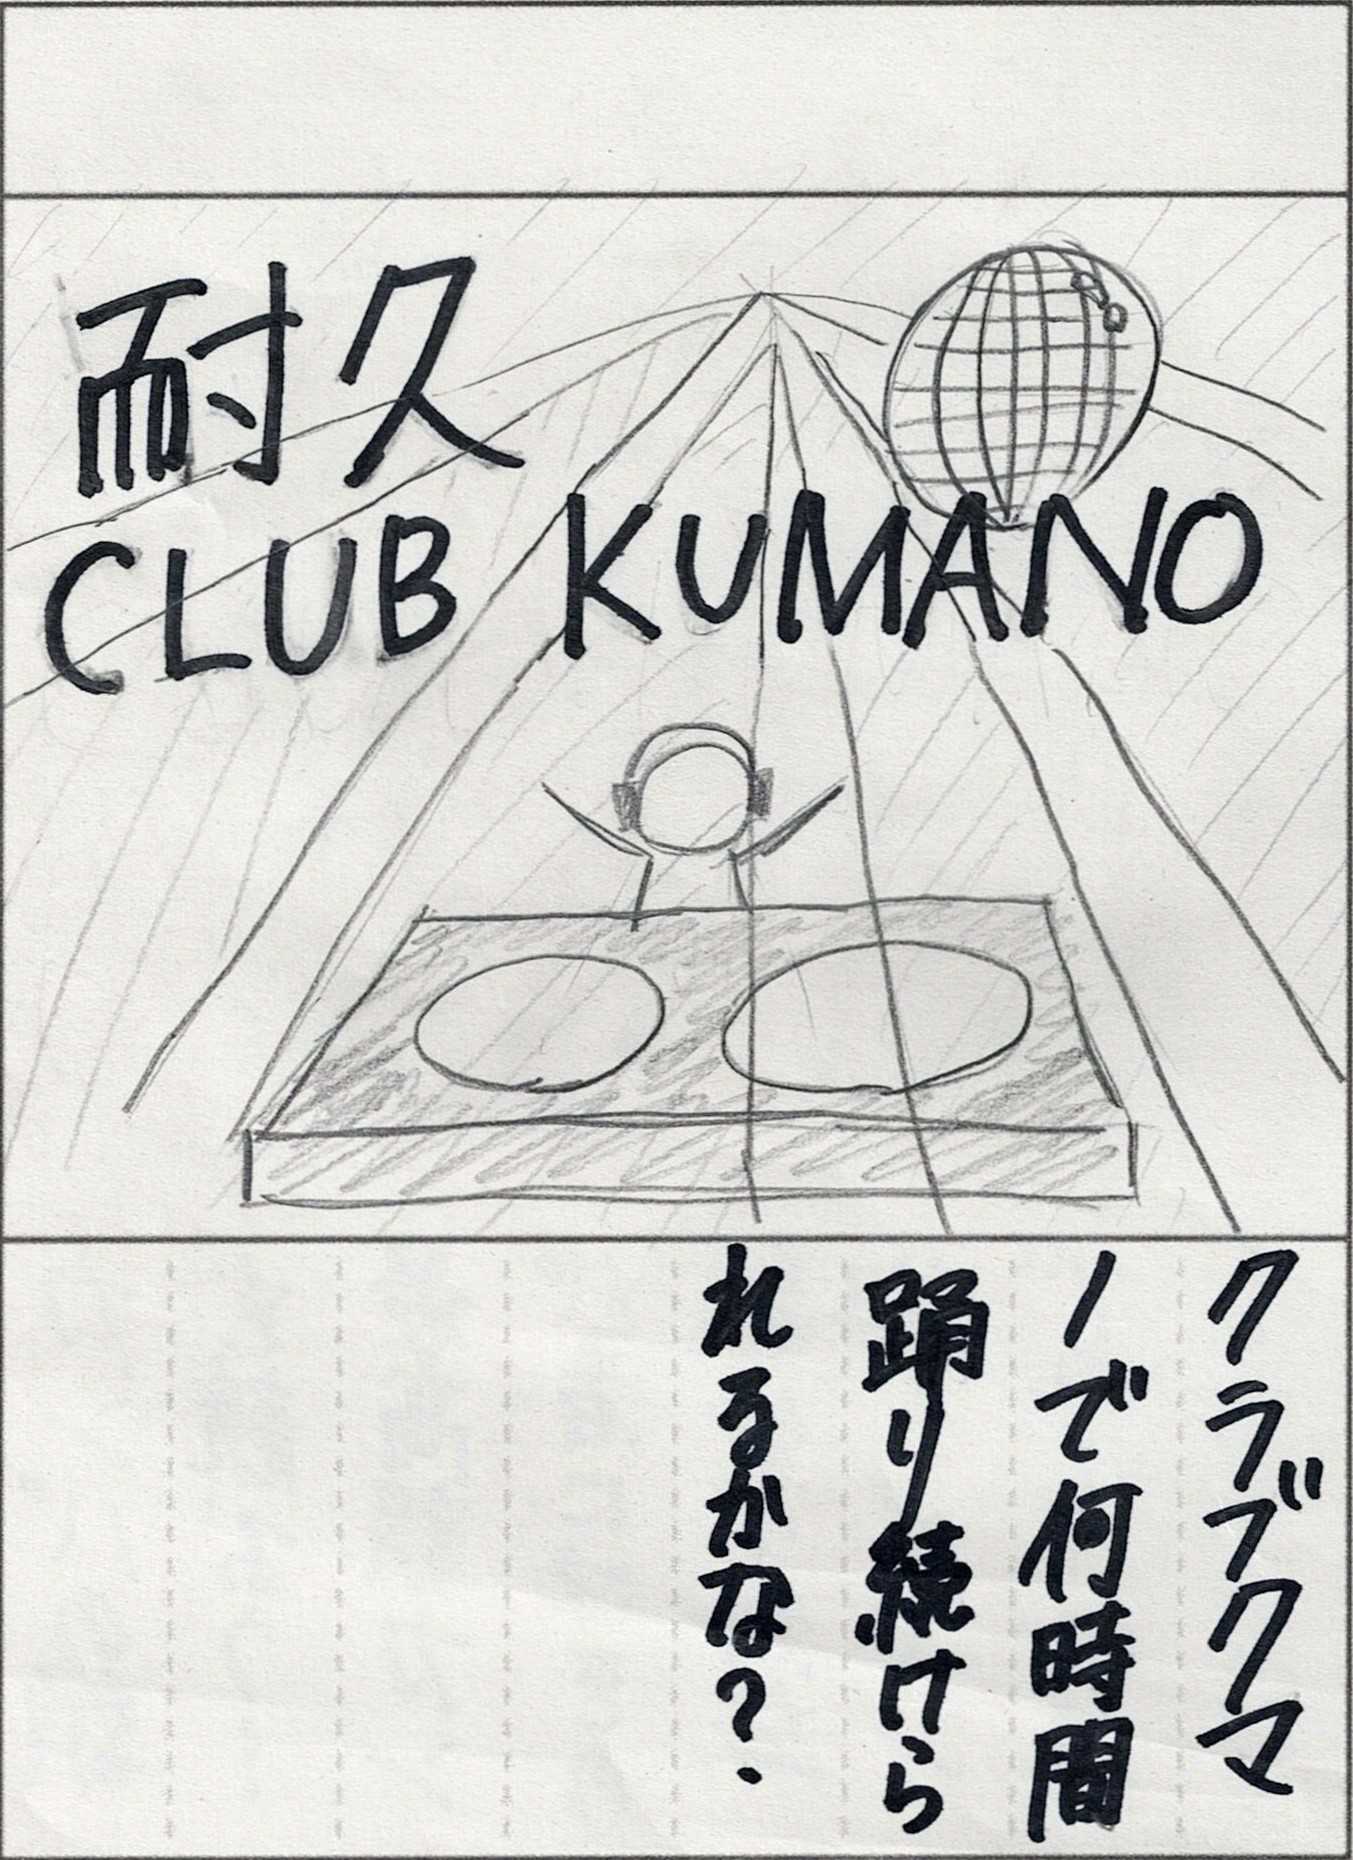 耐久
CLUB KUMANO
クラブクマ
ノで何時間
踊り続けら
れるかな?